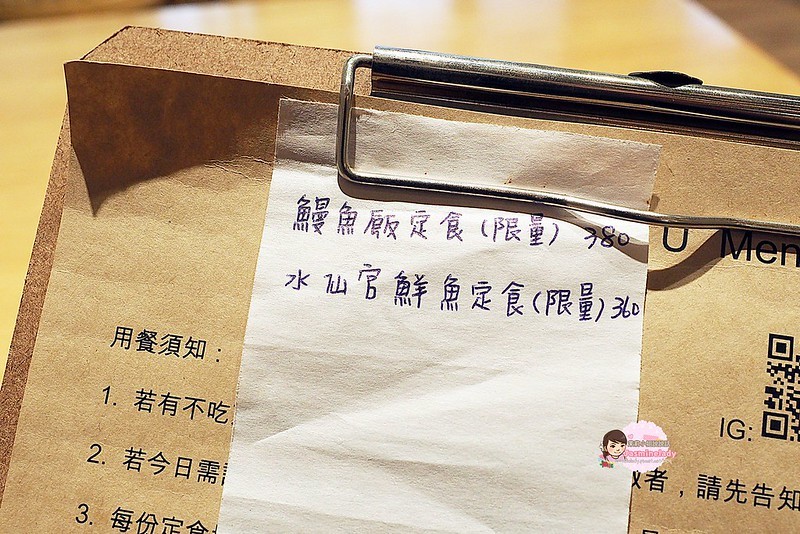 鰻魚飯定食(限量) 380
水仙宮鮮魚定食(限量)360
U Men
用餐須知：
1. 若有不吃
IG:
2. 若今日需
者，請先告知
3. 每份定食
Jasminelady